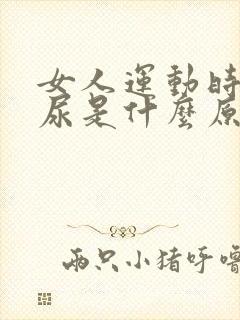 女人運動時
尿是什麼原
兩只小猪呼噜